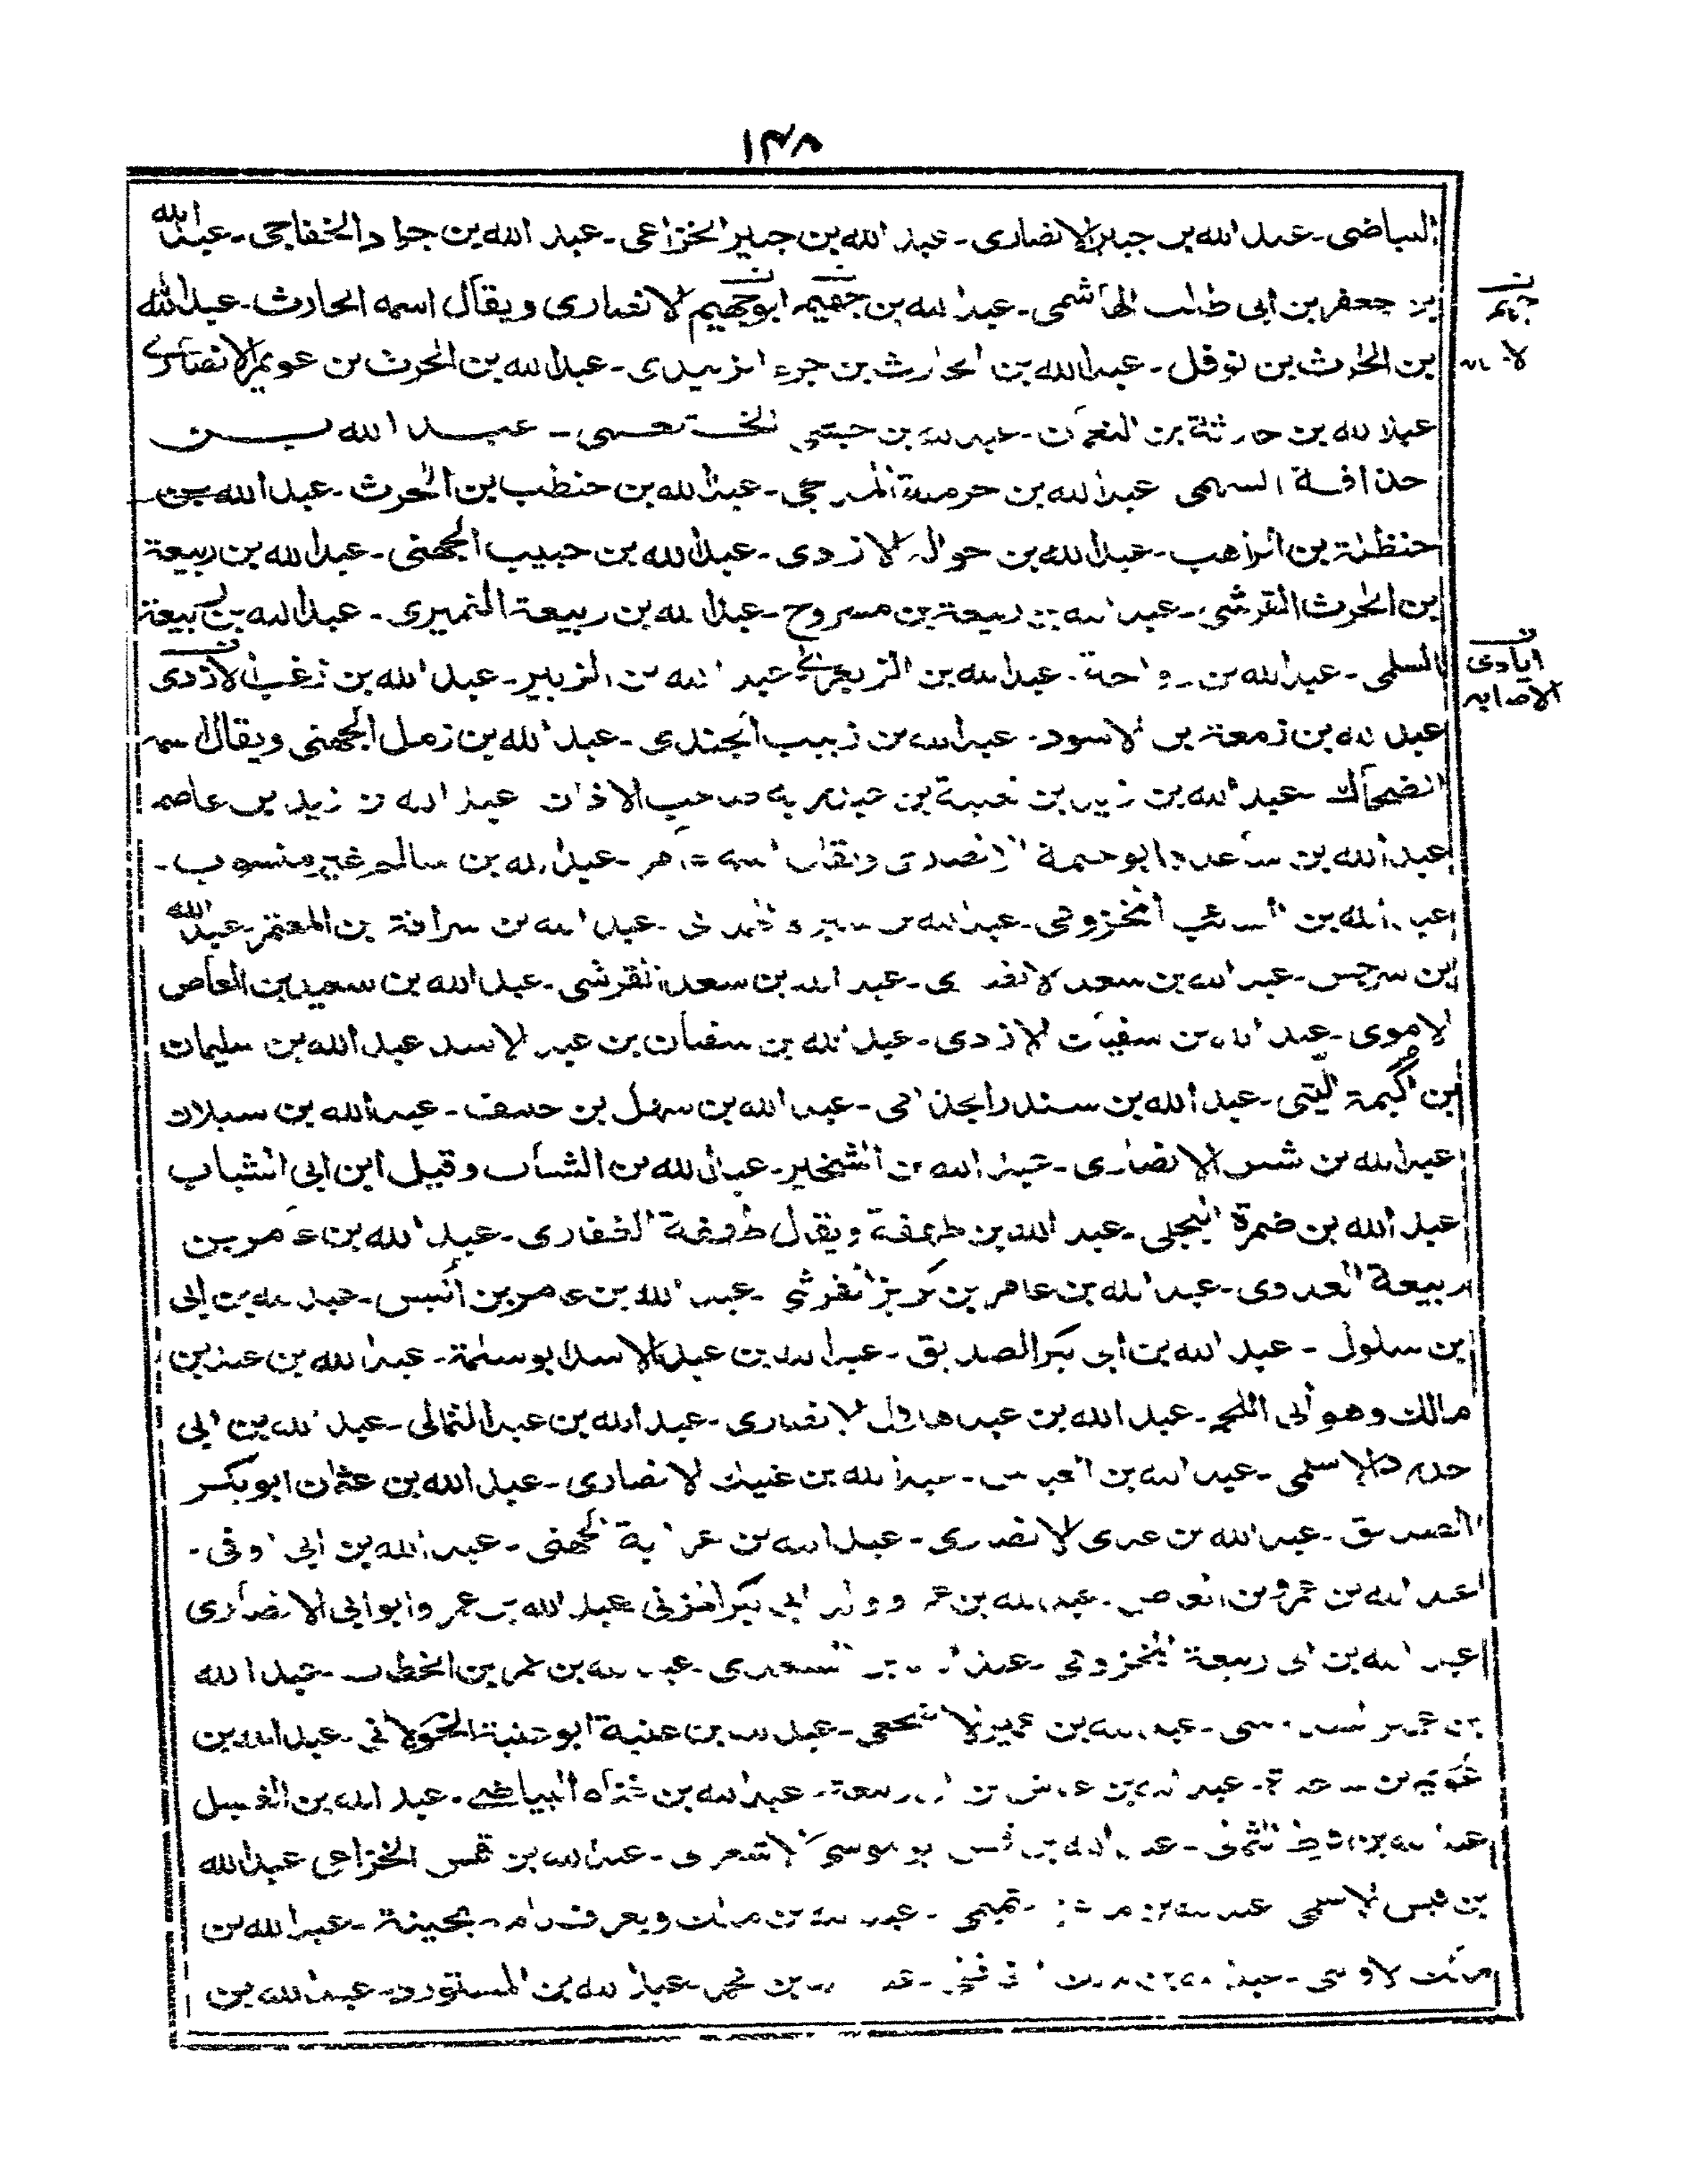 ۱۴۸
البياضى - عبد الله بن جبير الانصارى - عبد الله بن جبير الخزاعى - عبد الله بن جراد الخفاجى - عبد الله
بن جعفر بن ابى طالب الهاشمى - عبد الله بن جهيم ابو جهيم الانصارى ويقال اسمه الحارث - عبد الله
بن الحارث بن نوفل - عبد الله بن الحارث بن جزء الزبيدى - عبد الله بن الحرث بن عويمر الانصارى
عبد الله بن حارثة بن النعمان - عبد الله بن حبشى الخثعمى - عبد الله بن
حذافة السهمى عبد الله بن حرملة المدلجى - عبد الله بن حنطب بن الحرث - عبد الله بن
حنظلة بن الراهب - عبد الله بن حواله الازدى - عبد الله بن حبيب الجهنى - عبد الله بن ربيعة
بن الحرث القرشى - عبد الله بن ربيعة بن مسروح - عبد الله بن ربيعة النميرى - عبد الله بن ربيعة
السلمى - عبد الله بن رواحة - عبد الله بن الزبعرى عبد الله بن الزبير - عبد الله بن زغب الازدى
ايادى
الاصابه
عبد الله بن زمعة بن الاسود - عبد الله بن زبيب الجندى - عبد الله بن زمل الجهنى ويقال اسمه
الضحاك عبد الله بن زيد بن ثعلبة بن عبد ربه صاحب الاذان عبد الله بن زيد بن عاصم
عبد الله بن ساعدة ابو حثمة الانصارى ويقال اسمه عامر - عبد الله بن سالم غير منسوب -
عبد الله بن السائب المخزومى - عبد الله بن سبرة الهمدانى - عبد الله بن سراقة بن المعتمر - عبد الله
بن سرجس - عبد الله بن سعد الانصارى - عبد الله بن سعد القرشى - عبد الله بن سعيد بن العاص
الاموى - عبد الله بن سفيان الازدى - عبد الله بن سفيان بن عبد الاسد عبد الله بن سليمان
بن اكيمة الليثى - عبد الله بن سندر الجذامى - عبد الله بن سهل بن حنيف - عبد الله بن سيلان
عبد الله بن شمس الانصارى - عبد الله بن الشخير - عبد الله بن الشياب وقيل ابن ابى الشياب
عبد الله بن ضمرة البجلى - عبد الله بن طهفة ويقال طخفة الغفارى - عبد الله بن عامر بن
ربيعة العدوى - عبد الله بن عامر بن كريز القرشى - عبد الله بن عامر بن أنيس - عبد الله بن ابى
بن سلول - عبد الله بن ابى بكر الصديق - عبد الله بن عبد الاسد ابو سلمة - عبد الله بن عبد بن
مالك وهو آبى اللحم - عبد الله بن عبد هلال الانصارى - عبد الله بن عبد الثمالى - عبد الله بن ابى
حدرد الاسلمى - عبد الله بن العباس - عبد الله بن عتيك الانصارى - عبد الله بن عثمان ابو بكر
الصديق - عبد الله بن عدى الانصارى - عبد الله بن عرابة الجهنى - عبد الله بن ابى اوفى -
عبد الله بن عمرو بن العاص - عبد الله بن عمرو والد ابى بكر المزنى عبد الله بن عمرو ابو ابى الانصارى
عبد الله بن ابى ربيعة المخزومى - عبد الله بن السعدى - عبد الله بن عمر بن الخطاب - عبد الله
بن عمير - عبد الله بن عمير الاشجعى - عبد الله بن عنبة ابو عنبة الخولانى - عبد الله بن
عبد الله بن عياش بن ابى ربيعة - عبد الله بن غنام البياضى - عبد الله بن الغسيل
عبد الله بن قرط الثمالى - عبد الله بن قيس ابو موسى الاشعرى - عبد الله بن قيس الخزاعى عبد الله
بن قيس الاسلمى عبد الله بن - عبد الله بن مالك ويعرف بامه بحينة - عبد الله بن
مالك الاوسى - عبد الله بن مالك الغافقى - عبد الله بن محمد - عبد الله بن المستورد - عبد الله بن